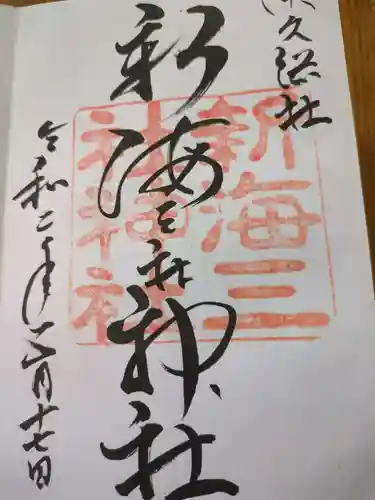 佐久総社
新海三社神社
新海三
社神社
令和二年一月十七日